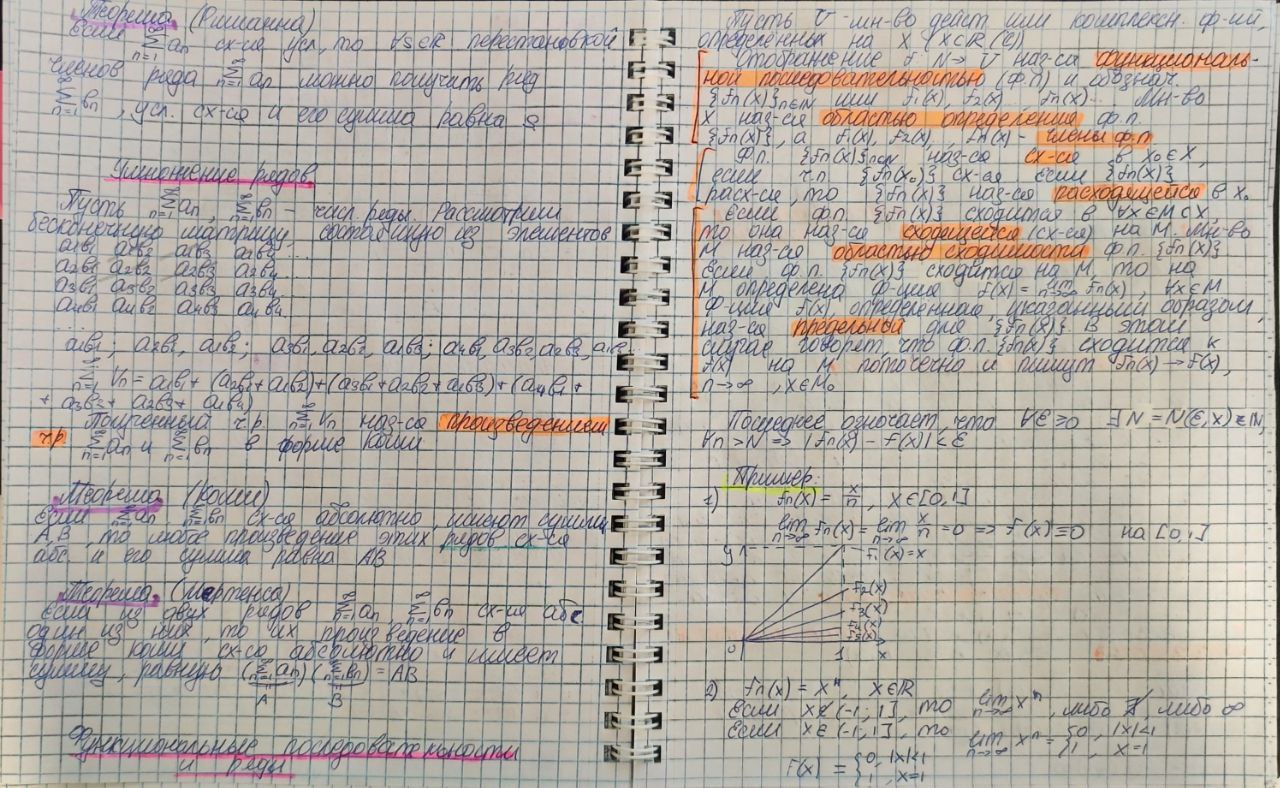 Теорема (Римана)
Если ∑_{n=1}^∞ an сх-ся усл, то ∀s∈R перестановкой
членов ряда ∑_{n=1}^∞ an можно получить ряд
∑_{n=1}^∞ bn, усл. сх-ся и его сумма равна s
Умножение рядов
Пусть ∑_{n=1}^∞ an, ∑_{n=1}^∞ bn – числ. ряды. Рассмотрим
бесконечную матрицу, состоящую из элементов
a1b1 a1b2 a1b3 a1b4 ...
a2b1 a2b2 a2b3 a2b4 ...
a3b1 a3b2 a3b3 a3b4 ...
a4b1 a4b2 a4b3 a4b4 ...
....
a1b1, a2b1, a1b2; a3b1, a2b2, a1b3; a4b1, a3b2, a2b3, a1b4...
∑_{n=1}^∞ Vn = a1b1 + (a2b1 + a1b2) + (a3b1 + a2b2 + a1b3) + (a4b1 +
+ a3b3 + a2b3 + a1b4)
Полученный ч.р. ∑_{n=1}^∞ Vn наз-ся произведением
ч.р. ∑_{n=1}^∞ an и ∑_{n=1}^∞ bn в форме Коши
Теорема (Коши)
Если ∑_{n=1}^∞ an, ∑_{n=1}^∞ bn сх-ся абсолютно, имеют суммы
A, B, то любое произведение этих рядов сх-ся
абс. и его сумма равна AB
Теорема (Мертенса)
Если из двух рядов ∑_{n=1}^∞ an, ∑_{n=1}^∞ bn сх-ся абс
один из них, то их произведение в
форме Коши сх-ся абсолютно и имеет
сумму, равную (∑_{n=1}^∞ an) (∑_{n=1}^∞ bn) = AB
A B
Функциональные последовательности
и ряды
Пусть U -мн-во дейст или комплексн. ф-ий,
определённых на X (X⊂R (C))
Отображение f: N → U наз-ся функциональ-
ной последовательностью (Ф.П) и обознач
{fn(x)}n∈N или f1(x), f2(x), fn(x)... Мн-во
X наз-ся областью определения ф.п.
{fn(x)}, а f1(x), f2(x), fn(x) – члены ф.п
Ф.п. {fn(x)}n∈N наз-ся сх-ся в x0∈X,
если ч.п. {fn(x0)} сх-ся если {fn(x)}
расх-ся, то {fn(x)} наз-ся расходящейся в x0
Если ф.п. {fn(x)} сходится в ∀x∈M⊂X,
то она наз-ся сходящейся (сх-ся) на M. Мн-во
M наз-ся областью сходимости ф.п. {fn(x)}
Если ф.п. {fn(x)} сходится на M, то на
M определена ф-ция f(x) = lim_{n→∞} fn(x), ∀x∈M
Ф-ция f(x), определенная указанным образом,
наз-ся предельной для {fn(x)}. В этом
случае говорят что ф.п. {fn(x)} сходится к
f(x) на M поточечно и пишут fn(x) → f(x),
n→∞, x∈M0
Последнее означает, что ∀ε≥0 ∃N = N(ε,x)∈N,
∀n > N => |fn(x) – f(x)| < ε
Пример:
1) fn(x) = x/n, x∈[0,1]
lim_{n→∞} fn(x) = lim_{n→∞} x/n = 0 => f(x) ≡ 0 на [0,1]
y 1
f1(x)=x
f2(x)
f3(x)
f4(x)
f5(x)
0 1 x
2) fn(x) = x^n, x∈R
Если x∉(-1, 1], то lim_{n→∞} x^n, либо ∄, либо ∞
Если x∈(-1, 1], то lim_{n→∞} x^n = {0, |x|<1
1, x=1
f(x) = {0, |x|<1
1, x=1